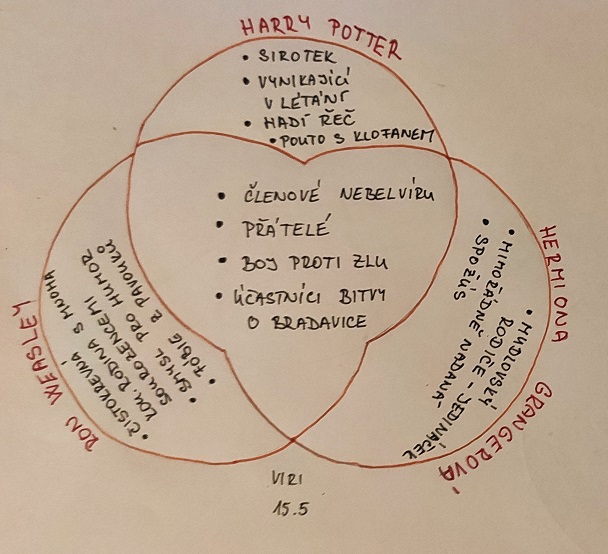 HARRY POTTER
• SIROTEK
• VYNIKAJÍCÍ
V LÉTÁNÍ
• HADÍ ŘEČ
• POUTO S KLOFANEM
• ČLENOVÉ NEBELVÍRU
• PŘÁTELÉ
• BOJ PROTI ZLU
• ÚČASTNÍCI BITVY
O BRADAVICE
RON WEASLEY
• ČISTOKREVNÁ
KOUZ. RODINA S MNOHA
SOUROZENCEMI
• SMYSL PRO HUMOR
• FOBIE Z PAVOUKŮ
HERMIONA
GRANGEROVÁ
• MUDLOVSKÝ
RODIČE - JEDINÁČEK
• MIMOŘÁDNĚ NADANÁ
• SPOŽÚS
VIRI
15.5